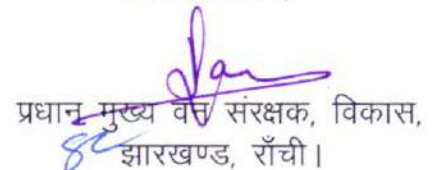 प्रधान मुख्य वन संरक्षक, विकास,
झारखण्ड, राँची।